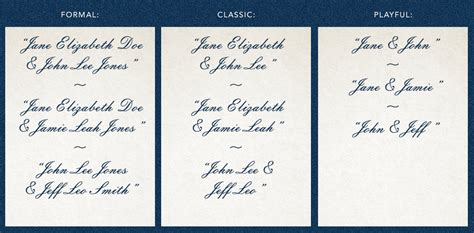 FORMAL:
"Jane Elizabeth Doe
& John Lee Jones"
~
"Jane Elizabeth Doe
& Jamie Leah Jones"
~
"John Lee Jones
& Jeff Leo Smith"
CLASSIC:
"Jane Elizabeth
& John Lee"
~
"Jane Elizabeth
& Jamie Leah"
~
"John Lee &
Jeff Leo"
PLAYFUL:
"Jane & John"
~
"Jane & Jamie"
~
"John & Jeff"